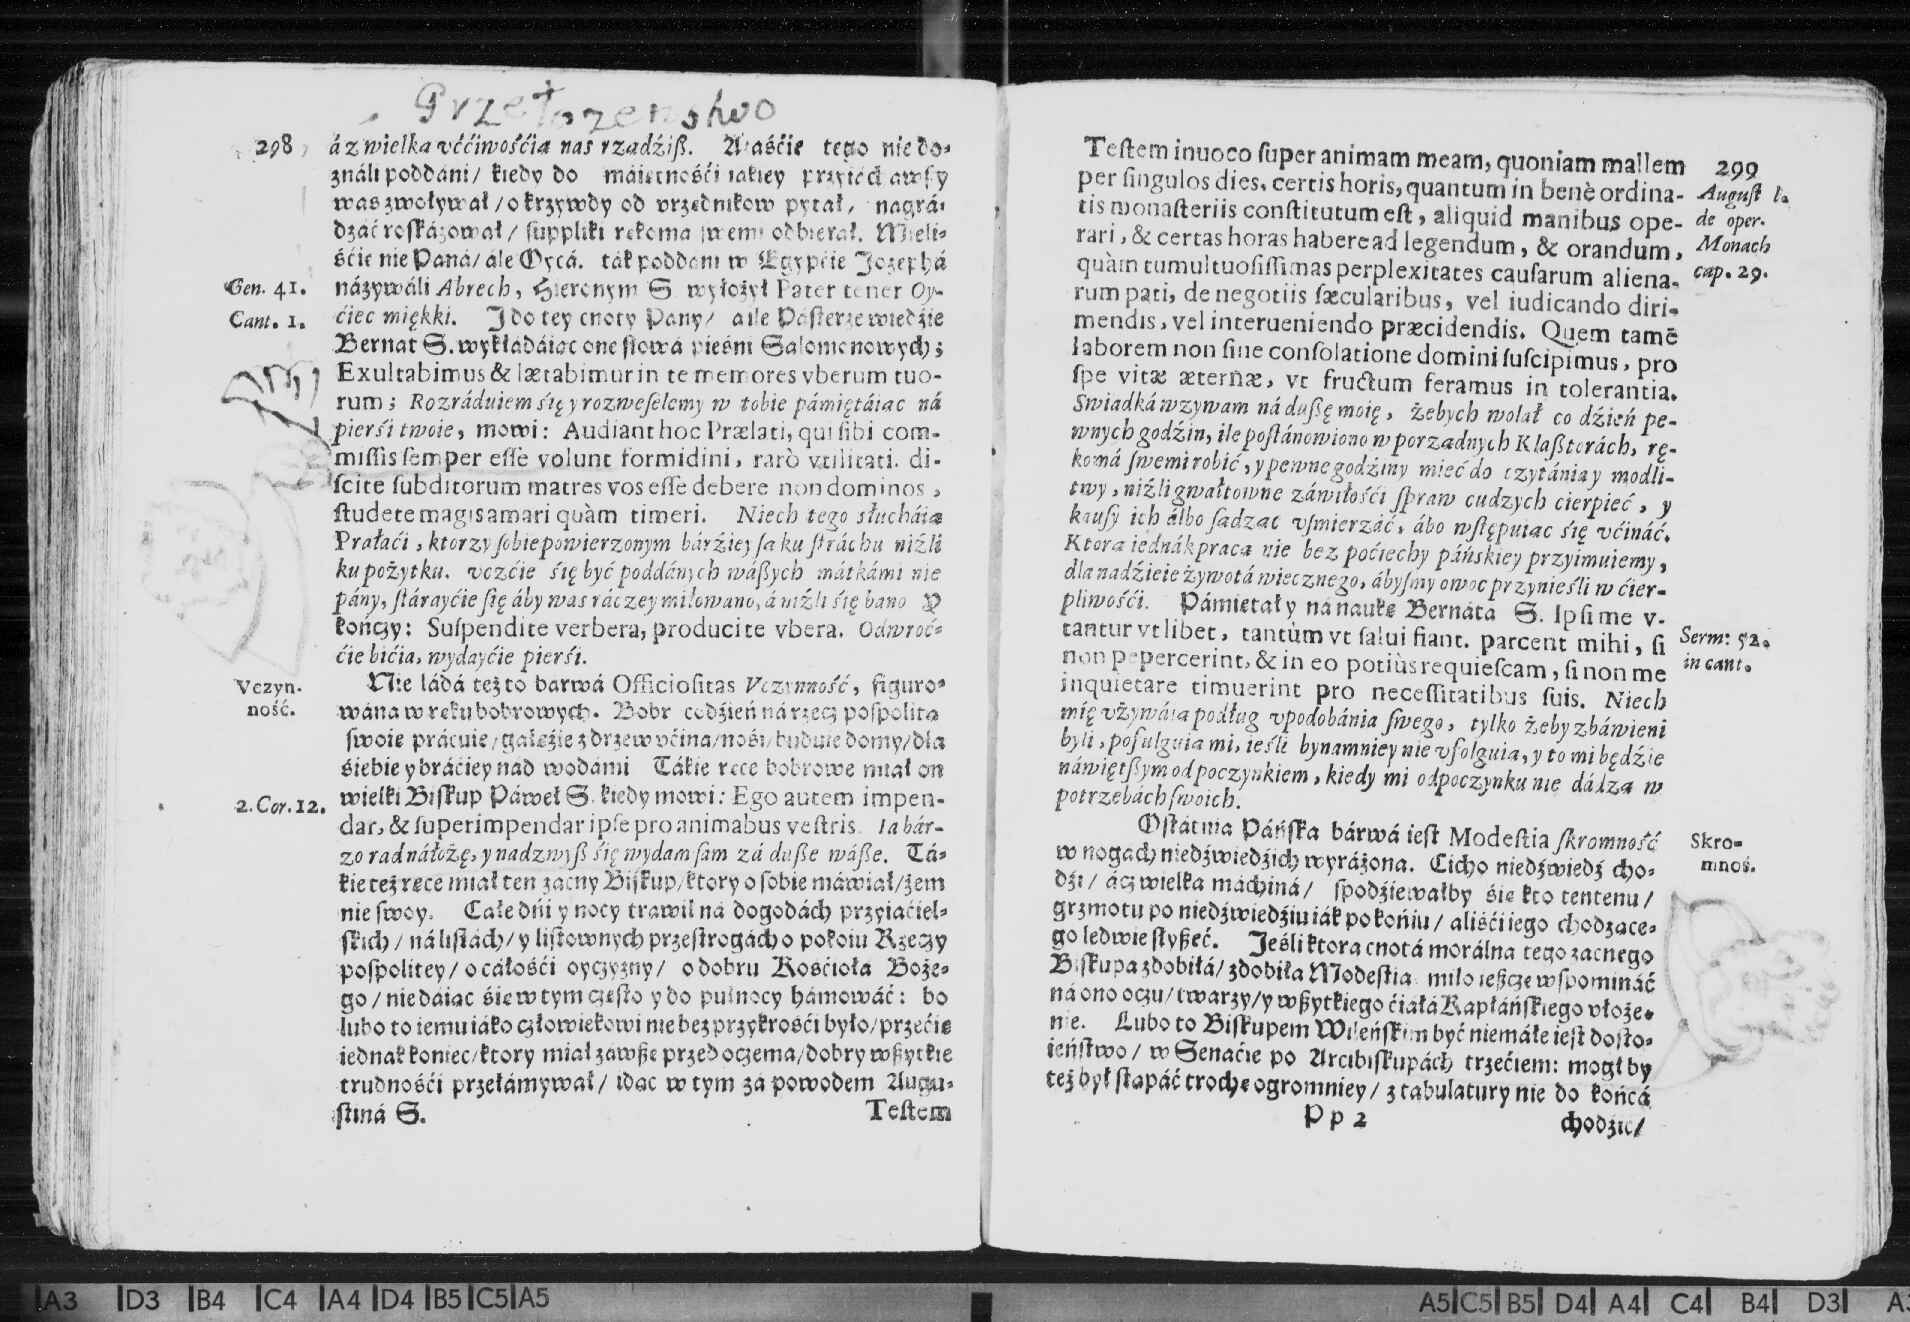 Przełozenstwo
298
á z wielka vććiwośćia nas rządźiß. Właśćie tego nie do-
ználi poddáni/ kiedy do máiętnośći iakiey przyiáchawszy
was zwoływał/ o krzywdy od vrzędnikow pytał, nagrá-
dzáć roskázował/ suppliki rękoma swemi odbierał. Mieli-
śćie nie Páná/ ále Oycá. ták poddáni w Egypćie Jozephá
Gen. 41.
názywáli Abrech, Hieronym S. wyłożył Pater tener Oy-
Cant. 1.
ćiec miękki. J do tey cnoty Pány/ á ile Pásterze wiedźie
Bernat S. wykłádáiąc one słowá pieśni Salomonowych;
Exultabimus & lætabimur in te memores vberum tuo-
rum; Rozráduiem się y rozweselemy w tobie pámiętáiac ná
pierśi twoie, mowi: Audiant hoc Prælati, qui sibi com-
missis semper esse volunt formidini, rarò vtilitati. di-
scite subditorum matres vos esse debere non dominos,
studete magis amari quàm timeri. Niech tego słucháia
Práłaći, ktorzy sobie powierzonym bárźiey sa ku stráchu niźli
ku pożytku. vczćie się być poddánych wáßych mátkámi nie
pány, stárayćie się áby was ráczey miłowano, á niźli się bano Y
kończy: Suspendite verbera, producite vbera. Odwroć-
ćie bićia, wydayćie pierśi.
Vczyn-
ność.
Nie ládá też to bárwá Officiositas Vczynność, figuro-
wána w ręku bobrowych. Bobr codźień ná rzecz pospolita
swoie prácuie/ gáłęźie z drzew vćina/ nośi/ buduie domy/ dla
śiebie y bráćiey nád wodámi Tákie ręce bobrowe miał on
2. Cor. 12.
wielki Biskup Páweł S. kiedy mowi: Ego autem impen-
dar, & superimpendar ipse pro animabus vestris. Ia bár-
zo rad náłożę, y nadzwyß się wydam sam zá duße wáße. Tá-
kie też ręce miał ten zacny Biskup/ ktory o sobie máwiał/ żem
nie swoy. Cáłe dńi y nocy trawił ná dogodách przyiaćiel-
skich/ ná listách/ y listownych przestrogách o pokoiu Rzeczy
pospolitey/ o cáłośći oyczyzny/ o dobru Kośćiołá Boże-
go/ nie dáiąc śię w tym często y do pułnocy hámowáć: bo
lubo to iemu iáko człowiekowi nie bez przykrośći było/ przećię
iednak koniec/ ktory miał záwße przed oczema/ dobry wßytkie
trudnośći przełámywał/ idąc w tym zá powodem Augu-
stiná S.
Testem
299
Testem inuoco super animam meam, quoniam mallem
per singulos dies, certis horis, quantum in benè ordina-
August l.
de oper.
Monach
cap. 29.
tis monasteriis constitutum est, aliquid manibus ope-
rari, & certas horas habere ad legendum, & orandum,
quàm tumultuosissimas perplexitates causarum aliena-
rum pati, de negotiis sæcularibus, vel iudicando diri-
mendis, vel interueniendo præcidendis. Quem tamē
laborem non sine consolatione domini suscipimus, pro
spe vitæ æternæ, vt fructum feramus in tolerantia.
Swiadká wzywam ná dußę moię, żebych wolał co dźień pe-
wnych godźin, ile postánowiono w porzadnych Klaßtorách, rę-
komá swemi robić, y pewne godźiny mieć do czytánia y modli-
twy, niźli gwałtowne záwiłośći spraw cudzych cierpieć, y
kausy ich álbo sadzac vśmierzáć, ábo wstępuiac się vćináć.
Ktora iednák praca nie bez poćiechy páńskiey przyimuiemy,
dla nadźieie żywotá wiecznego, ábysmy owoc przynieśli w ćier-
pliwośći. Pámiętał y ná naukę Bernátá S. Ipsi me v-
Serm: 52.
in cant.
tantur vt libet, tantùm vt salui fiant. parcent mihi, si
non pepercerint, & in eo potiùs requiescam, si non me
inquietare timuerint pro necessitatibus suis. Niech
mię vżywáia podług vpodobánia swego, tylko żeby zbáwieni
byli, pofulguia mi, ieśli bynamniey nie vfolguia, y to mi będźie
náwiętßym odpoczynkiem, kiedy mi odpoczynku nie dádza w
potrzebách swoich.
Skro-
mnoś.
Ostátnia Páńska bárwá iest Modestia skromność
w nogách niedźwiedźich wyráżona. Cicho niedźwiedź cho-
dźi/ ácz wielka máchiná/ spodźiewałby śię kto tentenu/
grzmotu po niedźwiedźiu iák po końiu/ aliśći iego chodzące-
go ledwie słyßeć. Jeśli ktora cnotá morálna tego zacnego
Biskupa zdobiłá/ zdobiła Modestia miło ießcze wspomináć
ná ono oczu/ twarzy/ y wßytkiego ćiałá Kapłáńskiego vłoże-
nie. Lubo to Biskupem Wileńskim być niemáłe iest dosto-
ieństwo/ w Senaćie po Arcibiskupách trzećiem: mogł by
też był stąpáć trochę ogromniey/ z tabulatury nie do końcá
P p 2
chodźić/
A3 D3 B4 C4 A4 D4 B5 C5 A5
A5 C5 B5 D4 A4 C4 B4 D3 A3